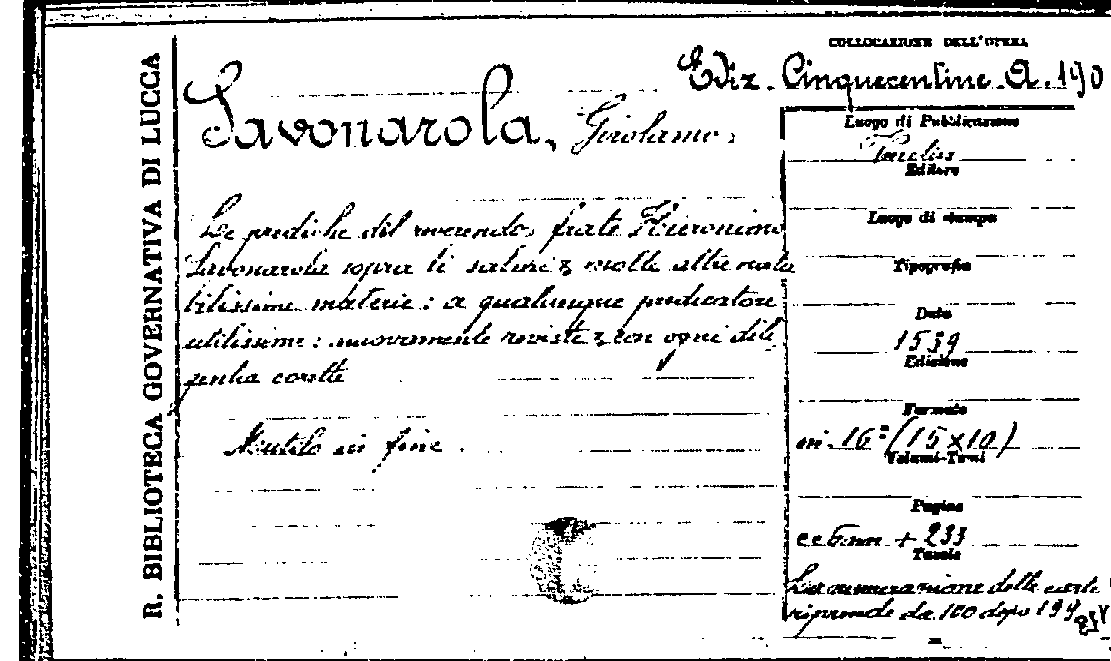 R. BIBLIOTECA GOVERNATIVA DI LUCCA
COLLOCAZIONE DELL'OPERA
Ediz. Cinquecentine A. 190
Savonarola, Girolamo.
Le prediche del reverendo frate Hieronimo
Savonarola sopra li salmi & molte altre nota
bilissime materie: a qualunque predicatore
utilissime: nuovamente reviste & con ogni dili
gentia corette
Mutilo in fine.
Luogo di Pubblicazione
Editore
Luogo di stampa
Tipografia
Data
1539
Edizione
Formato
in-16º (15x10)
Volumi-Tomi
Pagine
cc 6 nn + 233
Tavole
La numerazione delle carte
riprende da 100 dopo 199